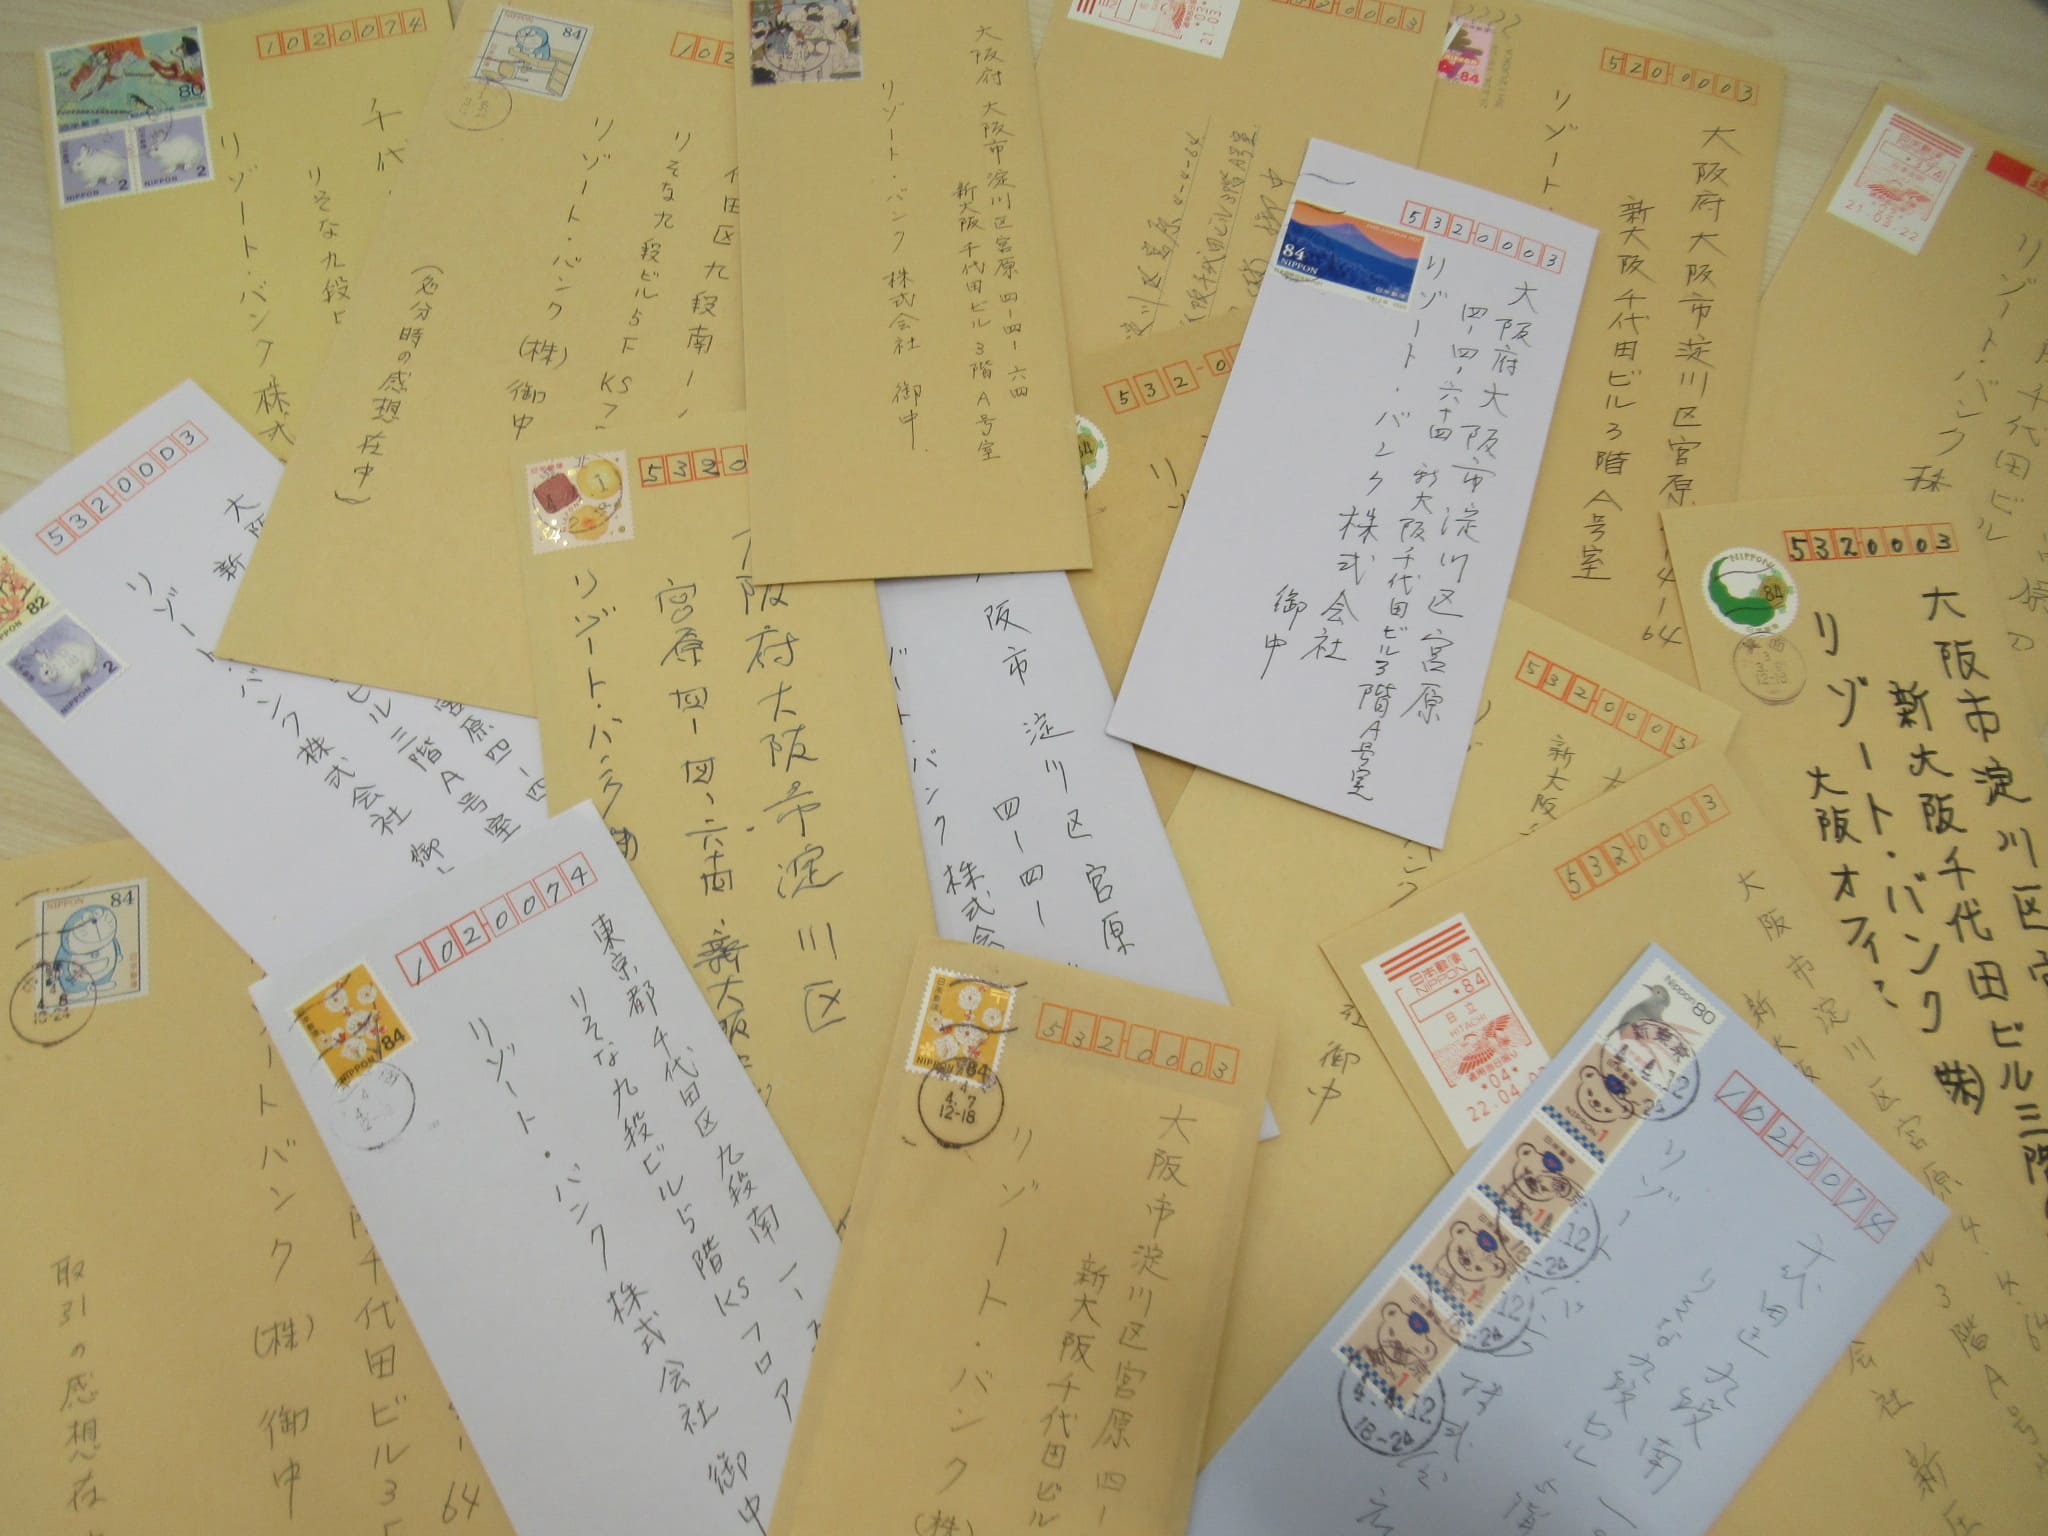 80
2
NIPPON
2
1020074
千代
りそな九段ビ
リゾート・バンク 株式
NIPPON
84
102
代田区九段南一ノ
りそな九段ビル5F KSフ
リゾート・バンク(株)御中
(処分時の感想在中)
大阪府 大阪市淀川区宮原 四-四-六四
新大阪千代田ビル3階 A号室
リゾート・バンク 株式会社 御中
21.03
0003
淀川区宮原4-4-64
大阪千代田ビル3階A号室
御中
84
5200003
大阪府大阪市淀川区宮原
4-64
新大阪千代田ビル3階A号室
リゾート・
日本郵便
21.03.22
千代田ビル
リゾート・バンク 株
84
NIPPON
5320003
大阪府大阪市淀川区宮原
四-四-六十四 新大阪千代田ビル3階A号室
リゾート・バンク 株式会社
御中
5320003
大
新
ビル三階A号室
宮原四-四
リゾート・バンク株式会社 御
82
2
NIPPON
5320
大阪府大阪市淀川区
宮原四-四-六十四、新大阪
リゾート・バンク(株)
阪市 淀川区 宮原
四-四-
リゾート・バンク 株式会
5320
84
5320003
新大阪
NIPPON
84
日本郵便
5320003
大阪市淀川区宮
新大阪千代田ビル三階
リゾート・バンク(株)
大阪オフィ
NIPPON
84
4
8
18-24
千代田ビル3F
-64
ートバンク(株)御中
取引の感想在
1020074
NIPPON 84
東京都千代田区九段南 一-
りそな九段ビル5階 KSフロア
リゾート・バンク 株式会社 御中
日本郵便
NIPPON 84
4.7
12-18
5320003
大阪市淀川区宮原 四-
新大阪千代田ビル
リゾート・バンク(株)
社 御中
5320003
日本郵便
NIPPON
*84
日立
HITACHI
*04*
22.04
大阪市淀川区宮原4-4-6
新大阪
ル3階A
会社
NIPPON 80
新東京
NIPPON 1
4.4.12
18-24
1020074
千代田区九段南一
りそな九段ビル 5階
リゾートバンク株式会社